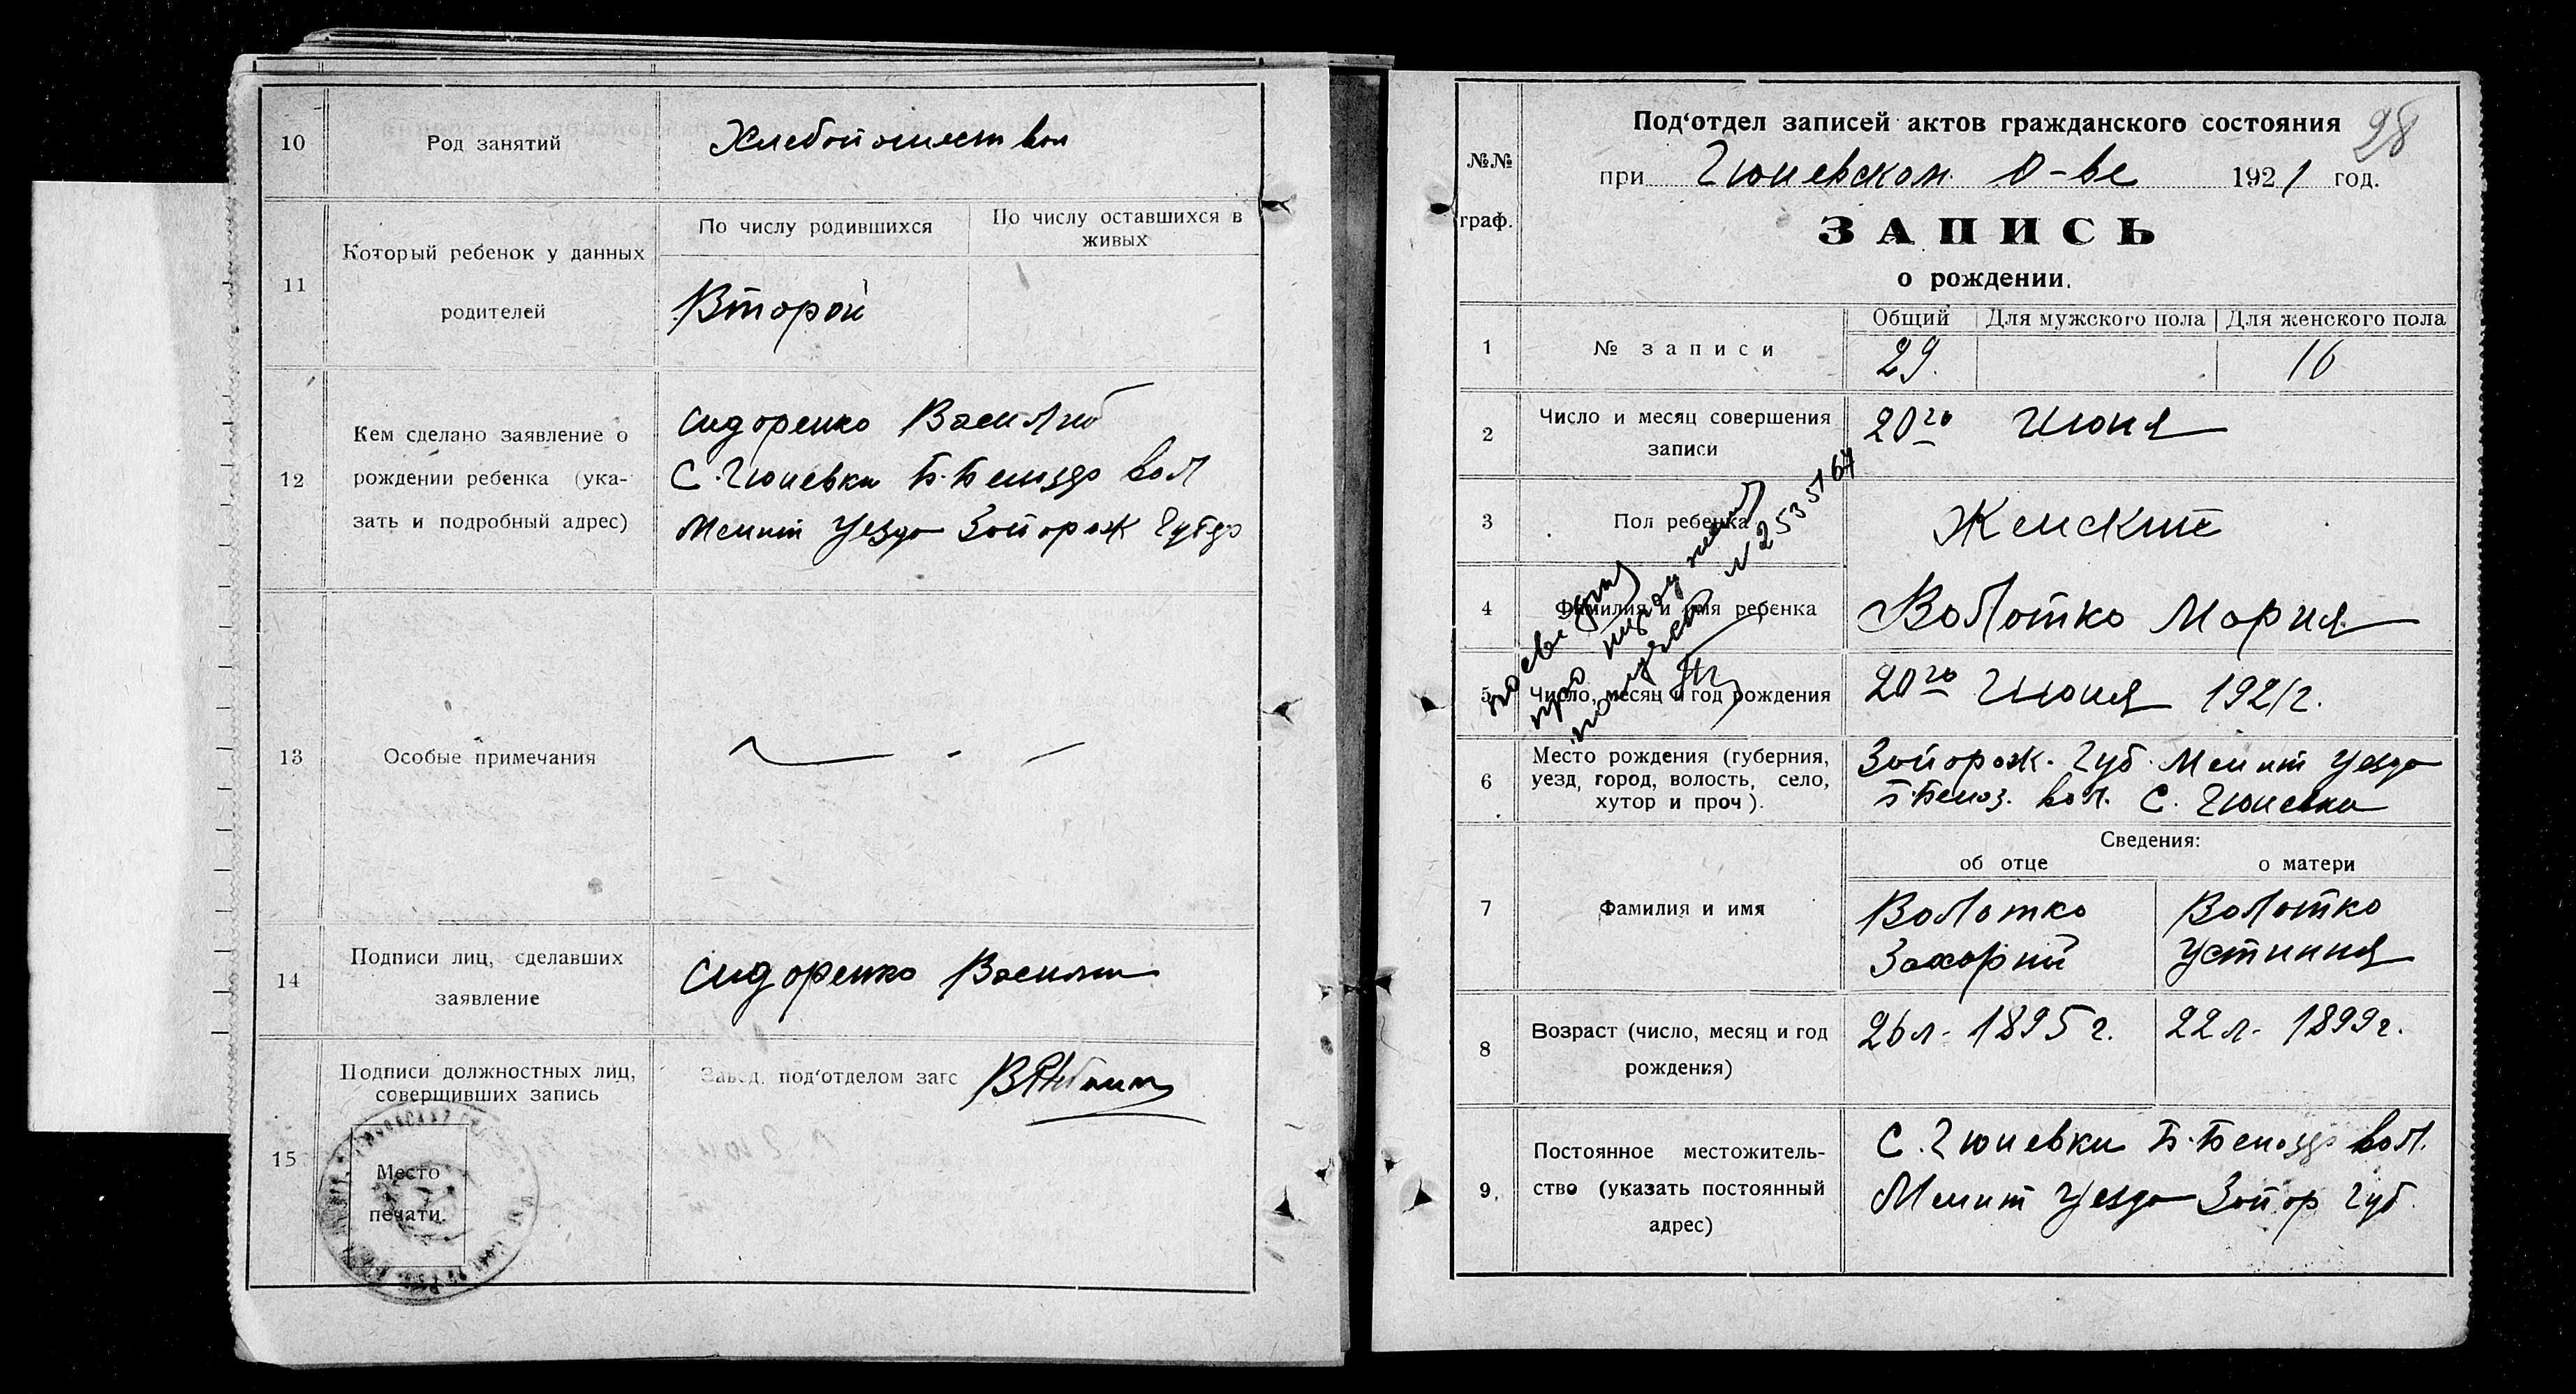 10
Род занятий
Хлебопашество
11
Который ребенок у данных
родителей
По числу родившихся
По числу оставшихся в
живых
Второй
12
Кем сделано заявление о
рождении ребенка (ука-
зать и подробный адрес)
Сидоренко Василий
С. Гюневки Б. Белозр вол
Мелит Уезда Запорож Губер
13
Особые примечания
14
Подписи лиц, сделавших
заявление
Сидоренко Василий
15
Подписи должностных лиц,
совершивших запись
Завед. под‘отделом загс
Место
печати.
28
№№
граф.
Под‘отдел записей актов гражданского состояния
при Гюневском О-ве 1921 год.
ЗАПИСЬ
о рождении.
Общий Для мужского пола Для женского пола
1
№ записи
29. 16
2
Число и месяц совершения
записи
20го Июня
3
Пол ребенка
Женский
4
Фамилия и имя ребенка
Волотко Мария
5
Число, месяц и год рождения
20го Июня 1921 г.
6
Место рождения (губерния,
уезд, город, волость, село,
хутор и проч).
Запорож. Губ. Мелит Уезда
Б. Белоз. вол. С. Гюневка
Сведения:
об отце о матери
7
Фамилия и имя
Волотко
Захарий
Волотко
Устиния
8
Возраст (число, месяц и год
рождения)
26 л - 1895 г. 22 л - 1899 г.
9.
Постоянное местожитель-
ство (указать постоянный
адрес)
С. Гюневки Б. Белозр вол.
Мелит Уезда Запор Губ.
№ 2535164